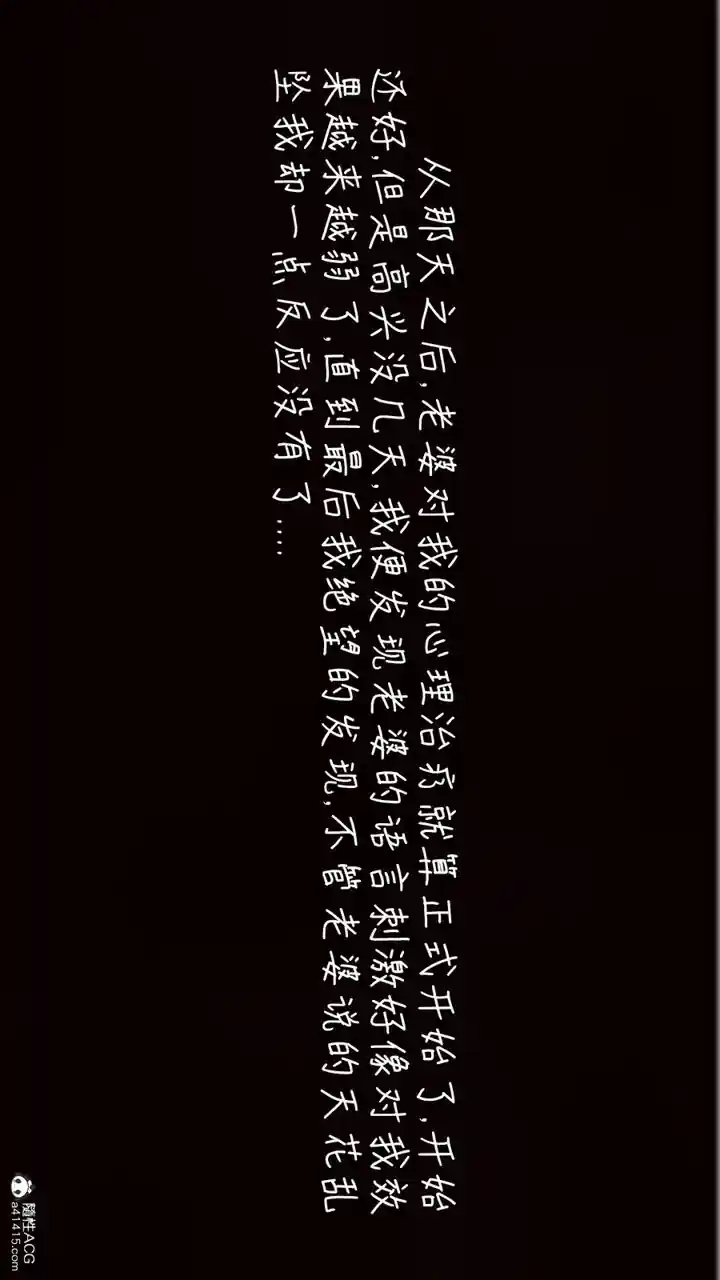 从那天之后,老婆对我的心理治疗就算正式开始了,开始
还好,但是高兴没几天,我便发现老婆的语言刺激好像对我效
果越来越弱了,直到最后我绝望的发现,不管老婆说的天花乱
坠我却一点反应没有了.....
随性ACG
a41415.com